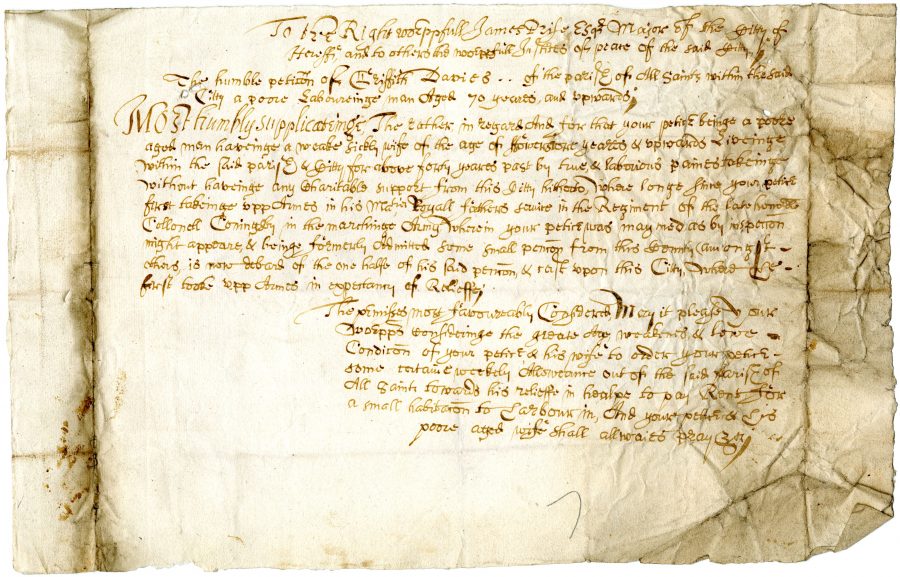 To the Right worppfull James Drise Esqr Maior of the Citty of
Hereff and to others his worppfull Justices of peace of the said Citty
The humble peticon of Griffith Davies .. of the parish of All Saints within the said
Citty a poore Laboureinge man Aged 70 yeares, and upwards
Most humbly supplicateinge, The rather in regard And for that your peticr beinge a poore
aged man haveinge a weake sickly wife of the age of fowerscore yeares & upwards Liveinge
within the said parish & Citty for above forty yeares past by true & laborious painestakeinge
without haveinge any Charitable support from this Citty hitherto, where longe since your peticr
first takeinge upp Armes in his Maties Royall fathers service in the Regiment of the late
Collonell Coningsby in the marchinge Army wherein your peticr was maymed as by inspeccon
might appeare, & beinge formerly Admitted some small pencon from this County amongst -
others, is now debard of the one halfe of his said pencon & cast upon this Citty where he -
first tooke upp Armes in expectancy of Releiffe
The premises most favoureably Considered May it please your
Worpps consideringe the greate Age weaknes & lowe -
Condicon of your peticr & his wife to order your peticr -
some certaine weekely Allowance out of the said Parish of
All Saints towards his releiffe in healpe to pay Rent for
a small habitacon to harbour in, And your peticr & his
poore aged wife shall allwaies pray &c